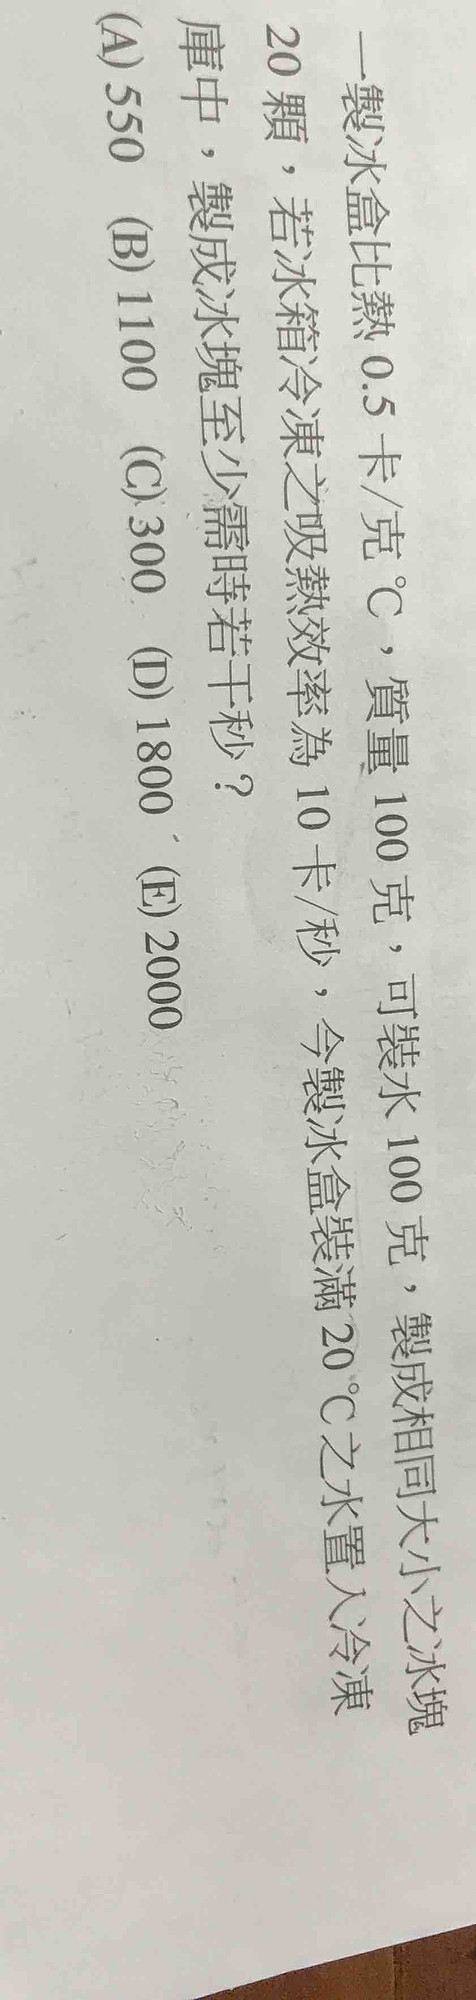 一製冰盒比熱 0.5 卡/克℃，質量 100 克，可裝水 100 克，製成相同大小之冰塊
20 顆，若冰箱冷凍之吸熱效率為 10 卡/秒，今製冰盒裝滿 20℃之水置入冷凍
庫中，製成冰塊至少需時若干秒？
(A) 550 (B) 1100 (C) 300 (D) 1800 (E) 2000